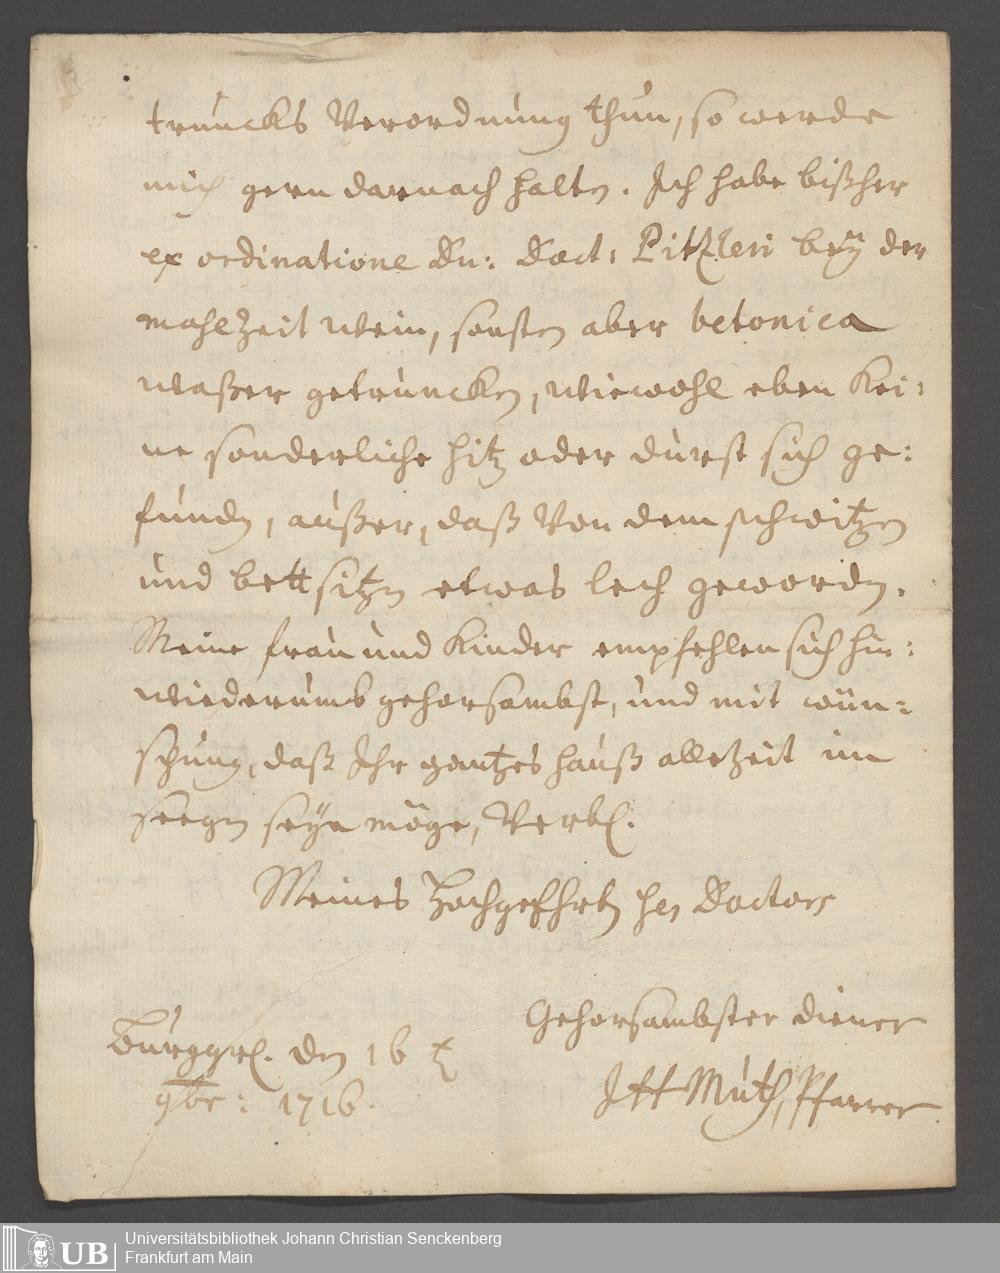 truncks Verordnung thun, so werde
mich gern darnach halten. Ich habe bißher
ex ordinatione Dn: Doct: Pitzleri beÿ der
mahlzeit Wein, sonsten aber betonica
Waßer getruncken, wiewohl eben kei:
ne sonderliche hitz oder durst sich ge:
funden, außer, daß von dem schwitzen
und bettsitzen etwas lech geworden.
Meine frau und Kinder empfehlen sich hin:
wiederumb gehorsambst, und mit wün:
schung, daß Ihr gantzes hauß allezeit im
seegen seÿn möge, Verbl.
Meines Hochgeehrten Hen Doctors
Gehorsambster diener
Burggrl. den 16
9br: 1716.
JH Muth, Pfarrer
UB
Universitätsbibliothek Johann Christian Senckenberg
Frankfurt am Main